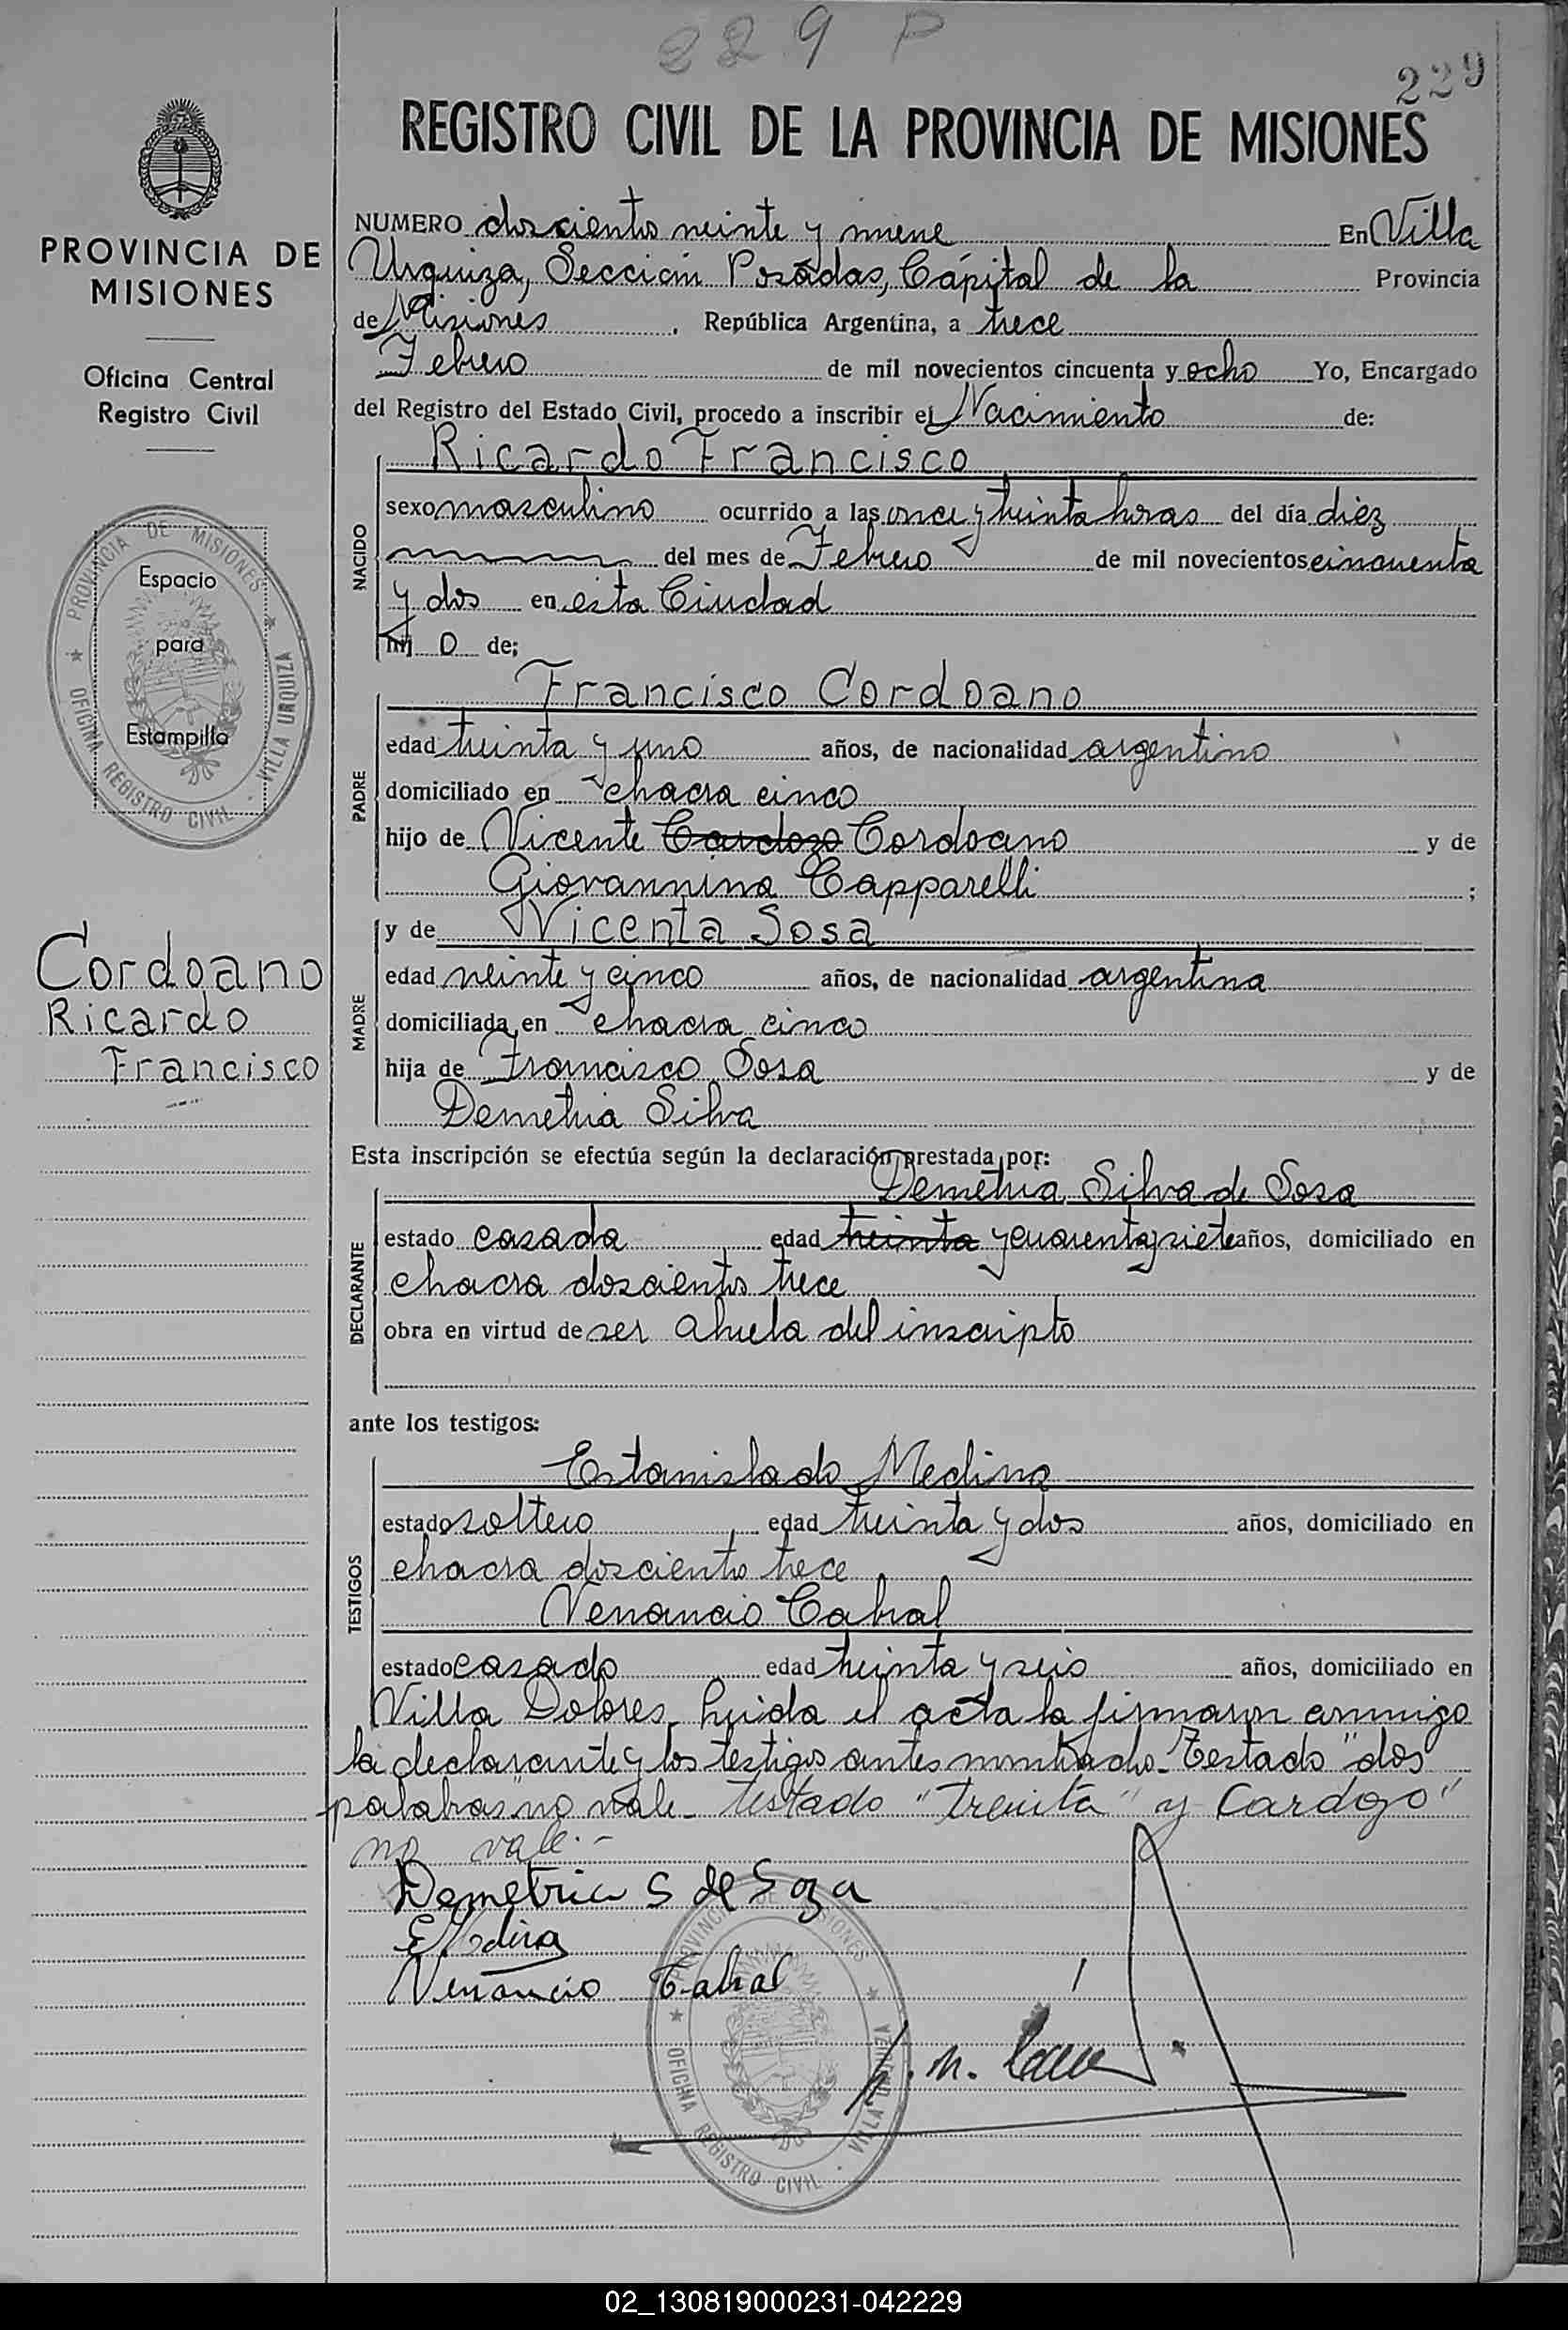 229 P
229
REGISTRO CIVIL DE LA PROVINCIA DE MISIONES
PROVINCIA DE
MISIONES
Oficina Central
Registro Civil
PROVINCIA DE MISIONES
Espacio
para
Estampilla
OFICINA REGISTRO CIVIL - VILLA URQUIZA
Cordoano
Ricardo
Francisco
NUMERO doscientos veinte y nueve En Villa
Urquiza, Sección Posadas, Cápital de la Provincia
de Misiones, República Argentina, a trece
Febrero de mil novecientos cincuenta y ocho Yo, Encargado
del Registro del Estado Civil, procedo a inscribir el Nacimiento de:
NACIDO
Ricardo Francisco
sexo masculino ocurrido a las once y treinta horas del día diez
del mes de Febrero de mil novecientos cincuenta
y dos en esta Ciudad
hij o de;
PADRE
Francisco Cordoano
edad treinta y uno años, de nacionalidad argentino
domiciliado en chacra cinco
hijo de Vicente Cardozo Cordoano y de
Giovannina Capparelli ;
MADRE
y de Vicenta Sosa
edad veinte y cinco años, de nacionalidad argentina
domiciliada en chacra cinco
hija de Francisco Sosa y de
Demetria Silva
Esta inscripción se efectúa según la declaración prestada por:
DECLARANTE
Demetria Silva de Sosa
estado casada edad treinta y cuarenta y siete años, domiciliado en
chacra doscientos trece
obra en virtud de ser abuela del inscripto
ante los testigos:
TESTIGOS
Estanislado Medina
estado soltero edad treinta y dos años, domiciliado en
chacra doscientos trece
Venancio Cabral
estado casado edad treinta y seis años, domiciliado en
Villa Dolores. Leida el acta la firmaron conmigo
la declarante y los testigos antes nombrados- Testado "dos
palabras" no vale- testado "treinta" y Cardozo"
no vale.-
Demetria S de Soza
E Medina
Venancio Cabral
PROVINCIA DE MISIONES
OFICINA REGISTRO CIVIL - VILLA URQUIZA
02_130819000231-042229